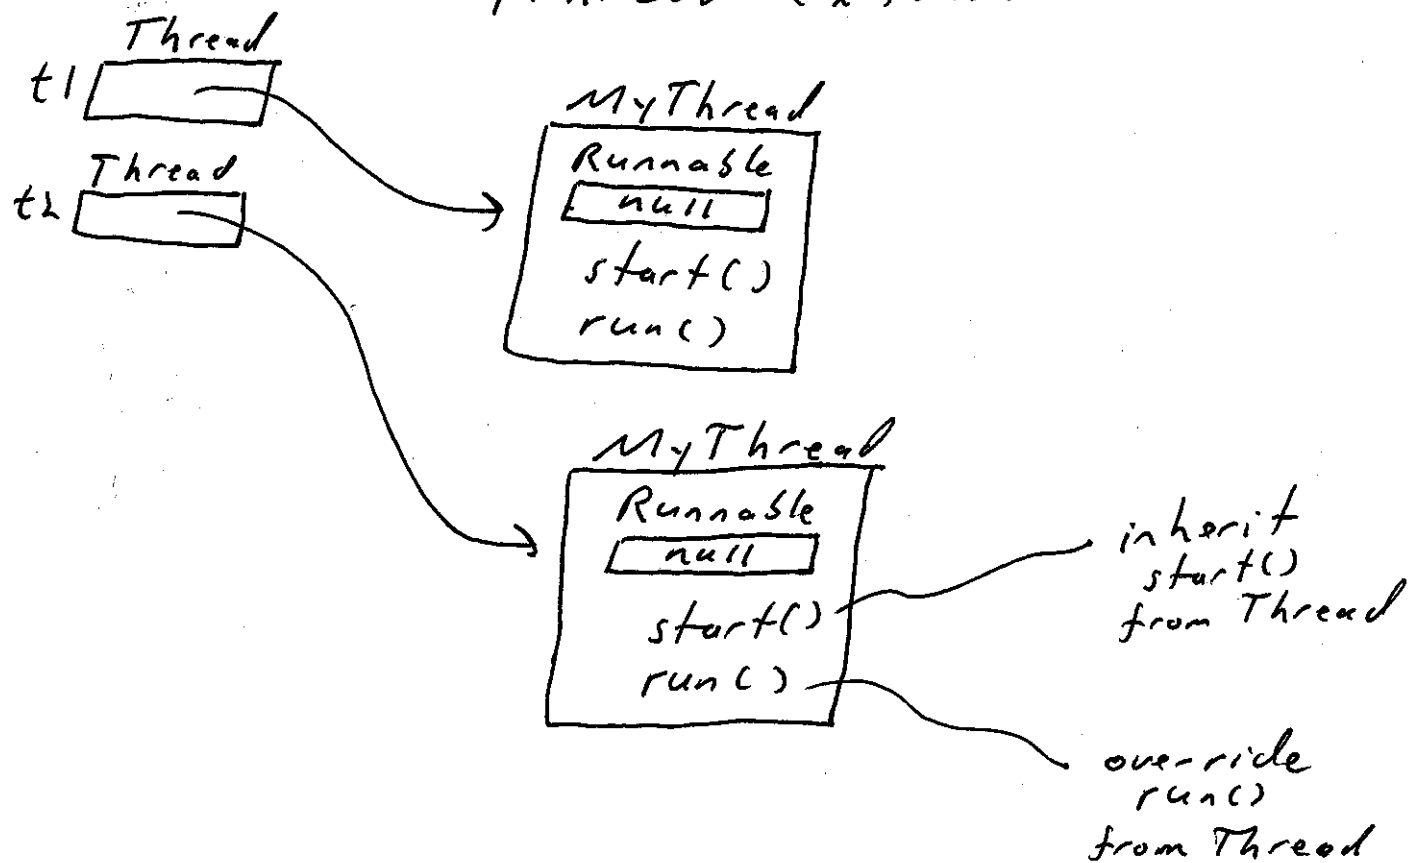 Thread
t1
MyThread
Runnable
null
start()
run()
Thread
t2
MyThread
Runnable
null
start()
run()
inherit
start()
from Thread
override
run()
from Thread